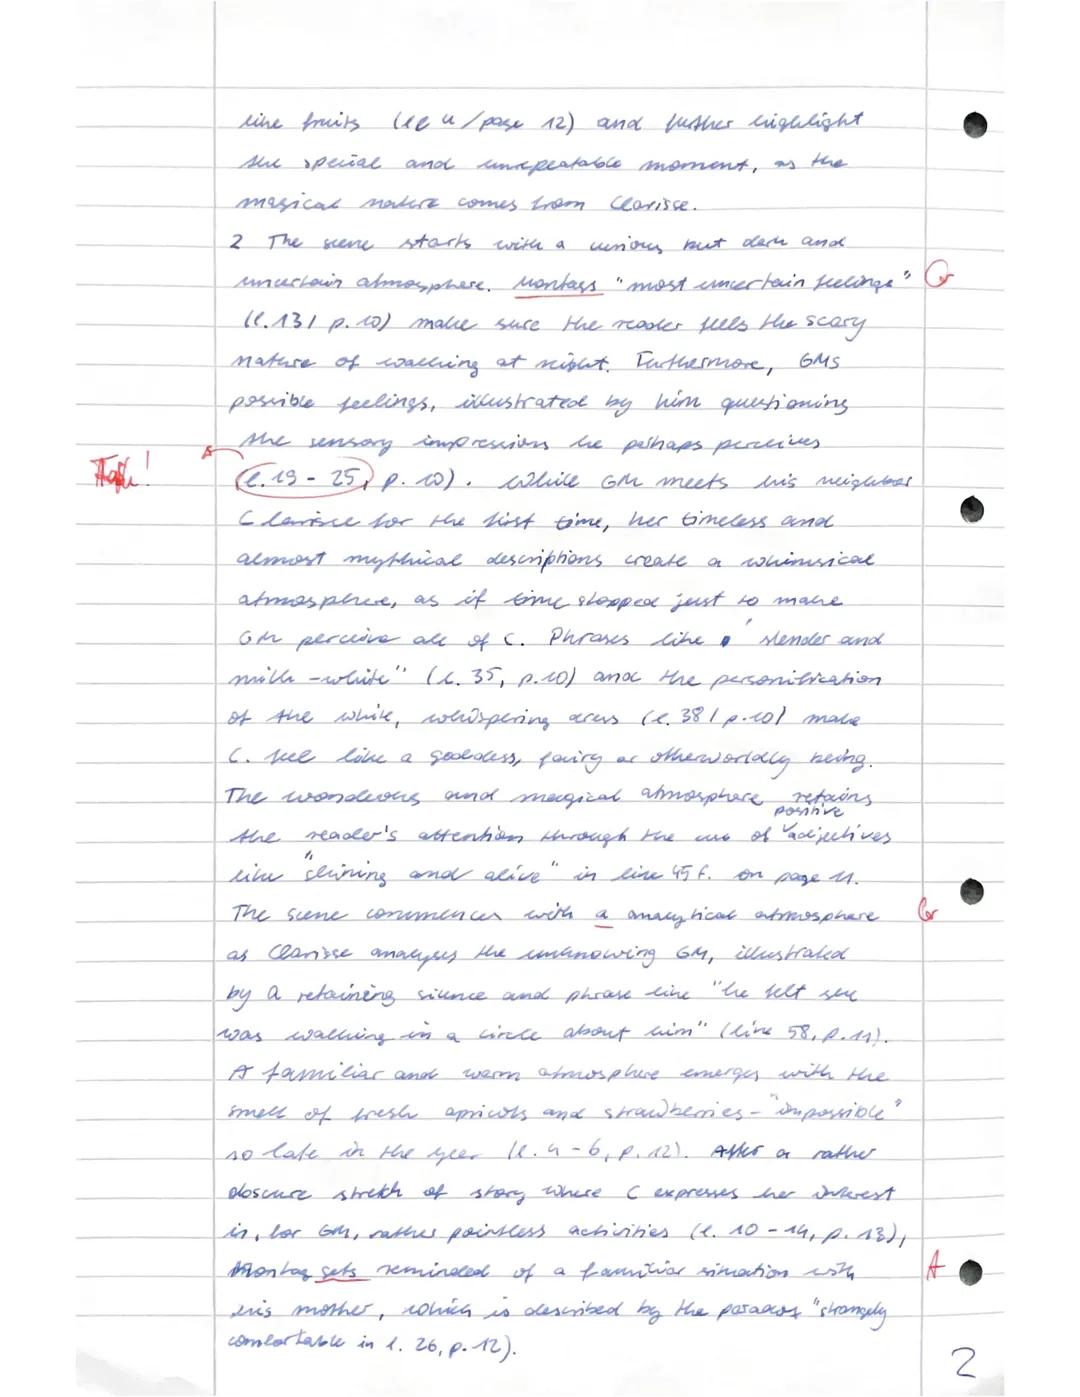 like fruits (ll 4/page 12) and further highlight
the special and unrepeatable moment, as the
magical nature comes from Clarisse.
2 The scene starts with a curious but dark and
uncertain atmosphere. Montags "most uncertain feelings" Gr
(l.13/ p.10) make sure the reader feels the scary
nature of walking at night. Furthermore, GMs
possible feelings, illustrated by him questioning
the sensory impressions he perhaps perceives
(l.19 - 25, p. 10). While GM meets his neighbour
Clarisse for the first time, her timeless and
almost mythical descriptions create a whimsical
atmosphere, as if time stopped just to make
GM perceive all of C. Phrases like "slender and
milk-white" (l. 35, p.10) and the personification
of the white, whispering dress (l. 38/ p.10) make
C. feel like a goddess, fairy or otherworldly being.
The wonderous and magical atmosphere retains
positive
the reader's attention through the use of adjectives
like "shining and alive" in line 45 f. on page 11.
The scene commences with a analytical atmosphere Gr
as Clarisse analyses the unknowing GM, illustrated
by a retaining silence and phrase like "he felt she
was walking in a circle about him" (line 58, p.11).
A familiar and warm atmosphere emerges with the
smell of fresh apricots and strawberries - "impossible"
so late in the year (l. 4-6, p.12). After a rather
obscure stretch of story where C expresses her interest
in, for GM, rather pointless activities (l. 10 - 14, p. 13),
Montag gets reminded of a familiar situation with A
his mother, which is described by the paradox "strangely
comfortable in l. 26, p.12).
2